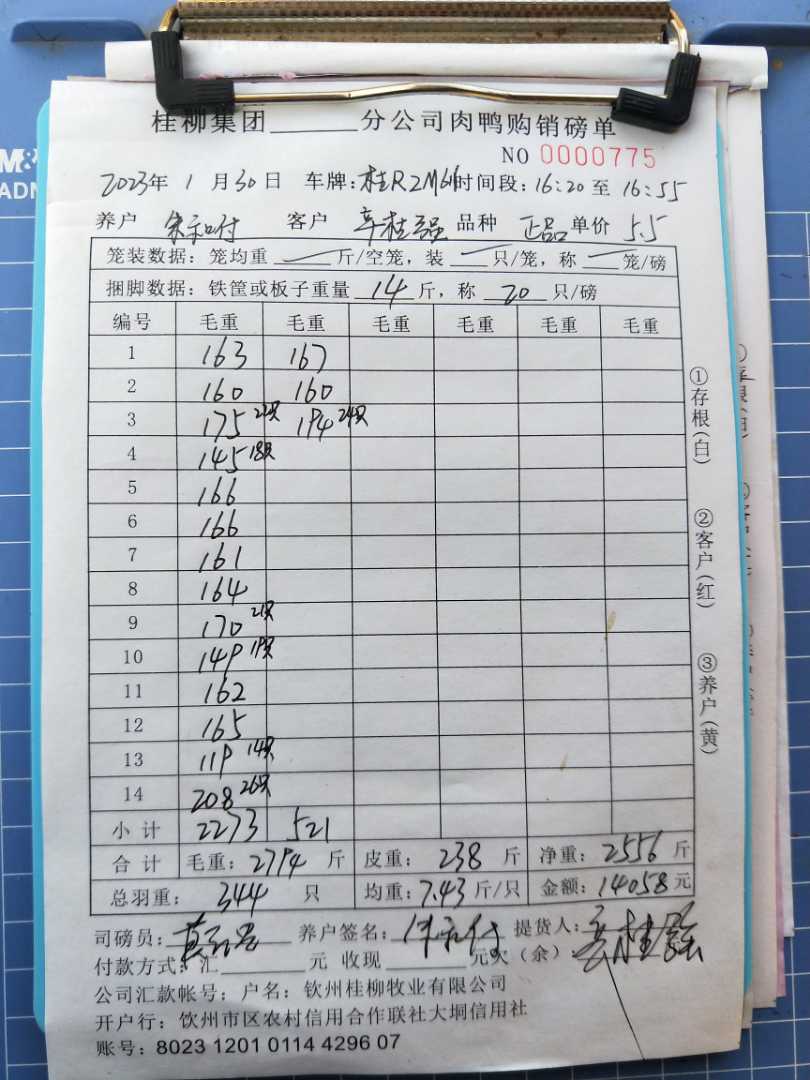 桂柳集团______分公司肉鸭购销磅单
NO 0000775
2023年 1 月 30 日 车牌: 桂R2M 时间段: 16:20 至 16:55
养户 朱和付 客户 辛桂强 品种 正品 单价 5.5
笼装数据: 笼均重 ____斤/空笼, 装 ___只/笼, 称 ___笼/磅
捆脚数据: 铁筐或板子重量 14 斤, 称 20 只/磅
编号 毛重 毛重 毛重 毛重 毛重 毛重
1 163 167
2 160 160
3 175 22只 194 24只
4 145 18只
5 166
6 166
7 161
8 164
9 170 21只
10 149 19只
11 162
12 165
13 119 14只
14 208 26只
小计 2273 521
合计 毛重: 2794 斤 皮重: 238 斤 净重: 2556 斤
总羽重: 344 只 均重: 7.43 斤/只 金额: 14058 元
司磅员: 养户签名: 朱和付 提货人: 辛桂强
付款方式: 汇______元 收现______元欠(余)
公司汇款帐号: 户名: 钦州桂柳牧业有限公司
开户行: 饮州市区农村信用合作联社大垌信用社
账号: 8023 1201 0114 4296 07
①存根(白)
②客户(红)
③养户(黄)